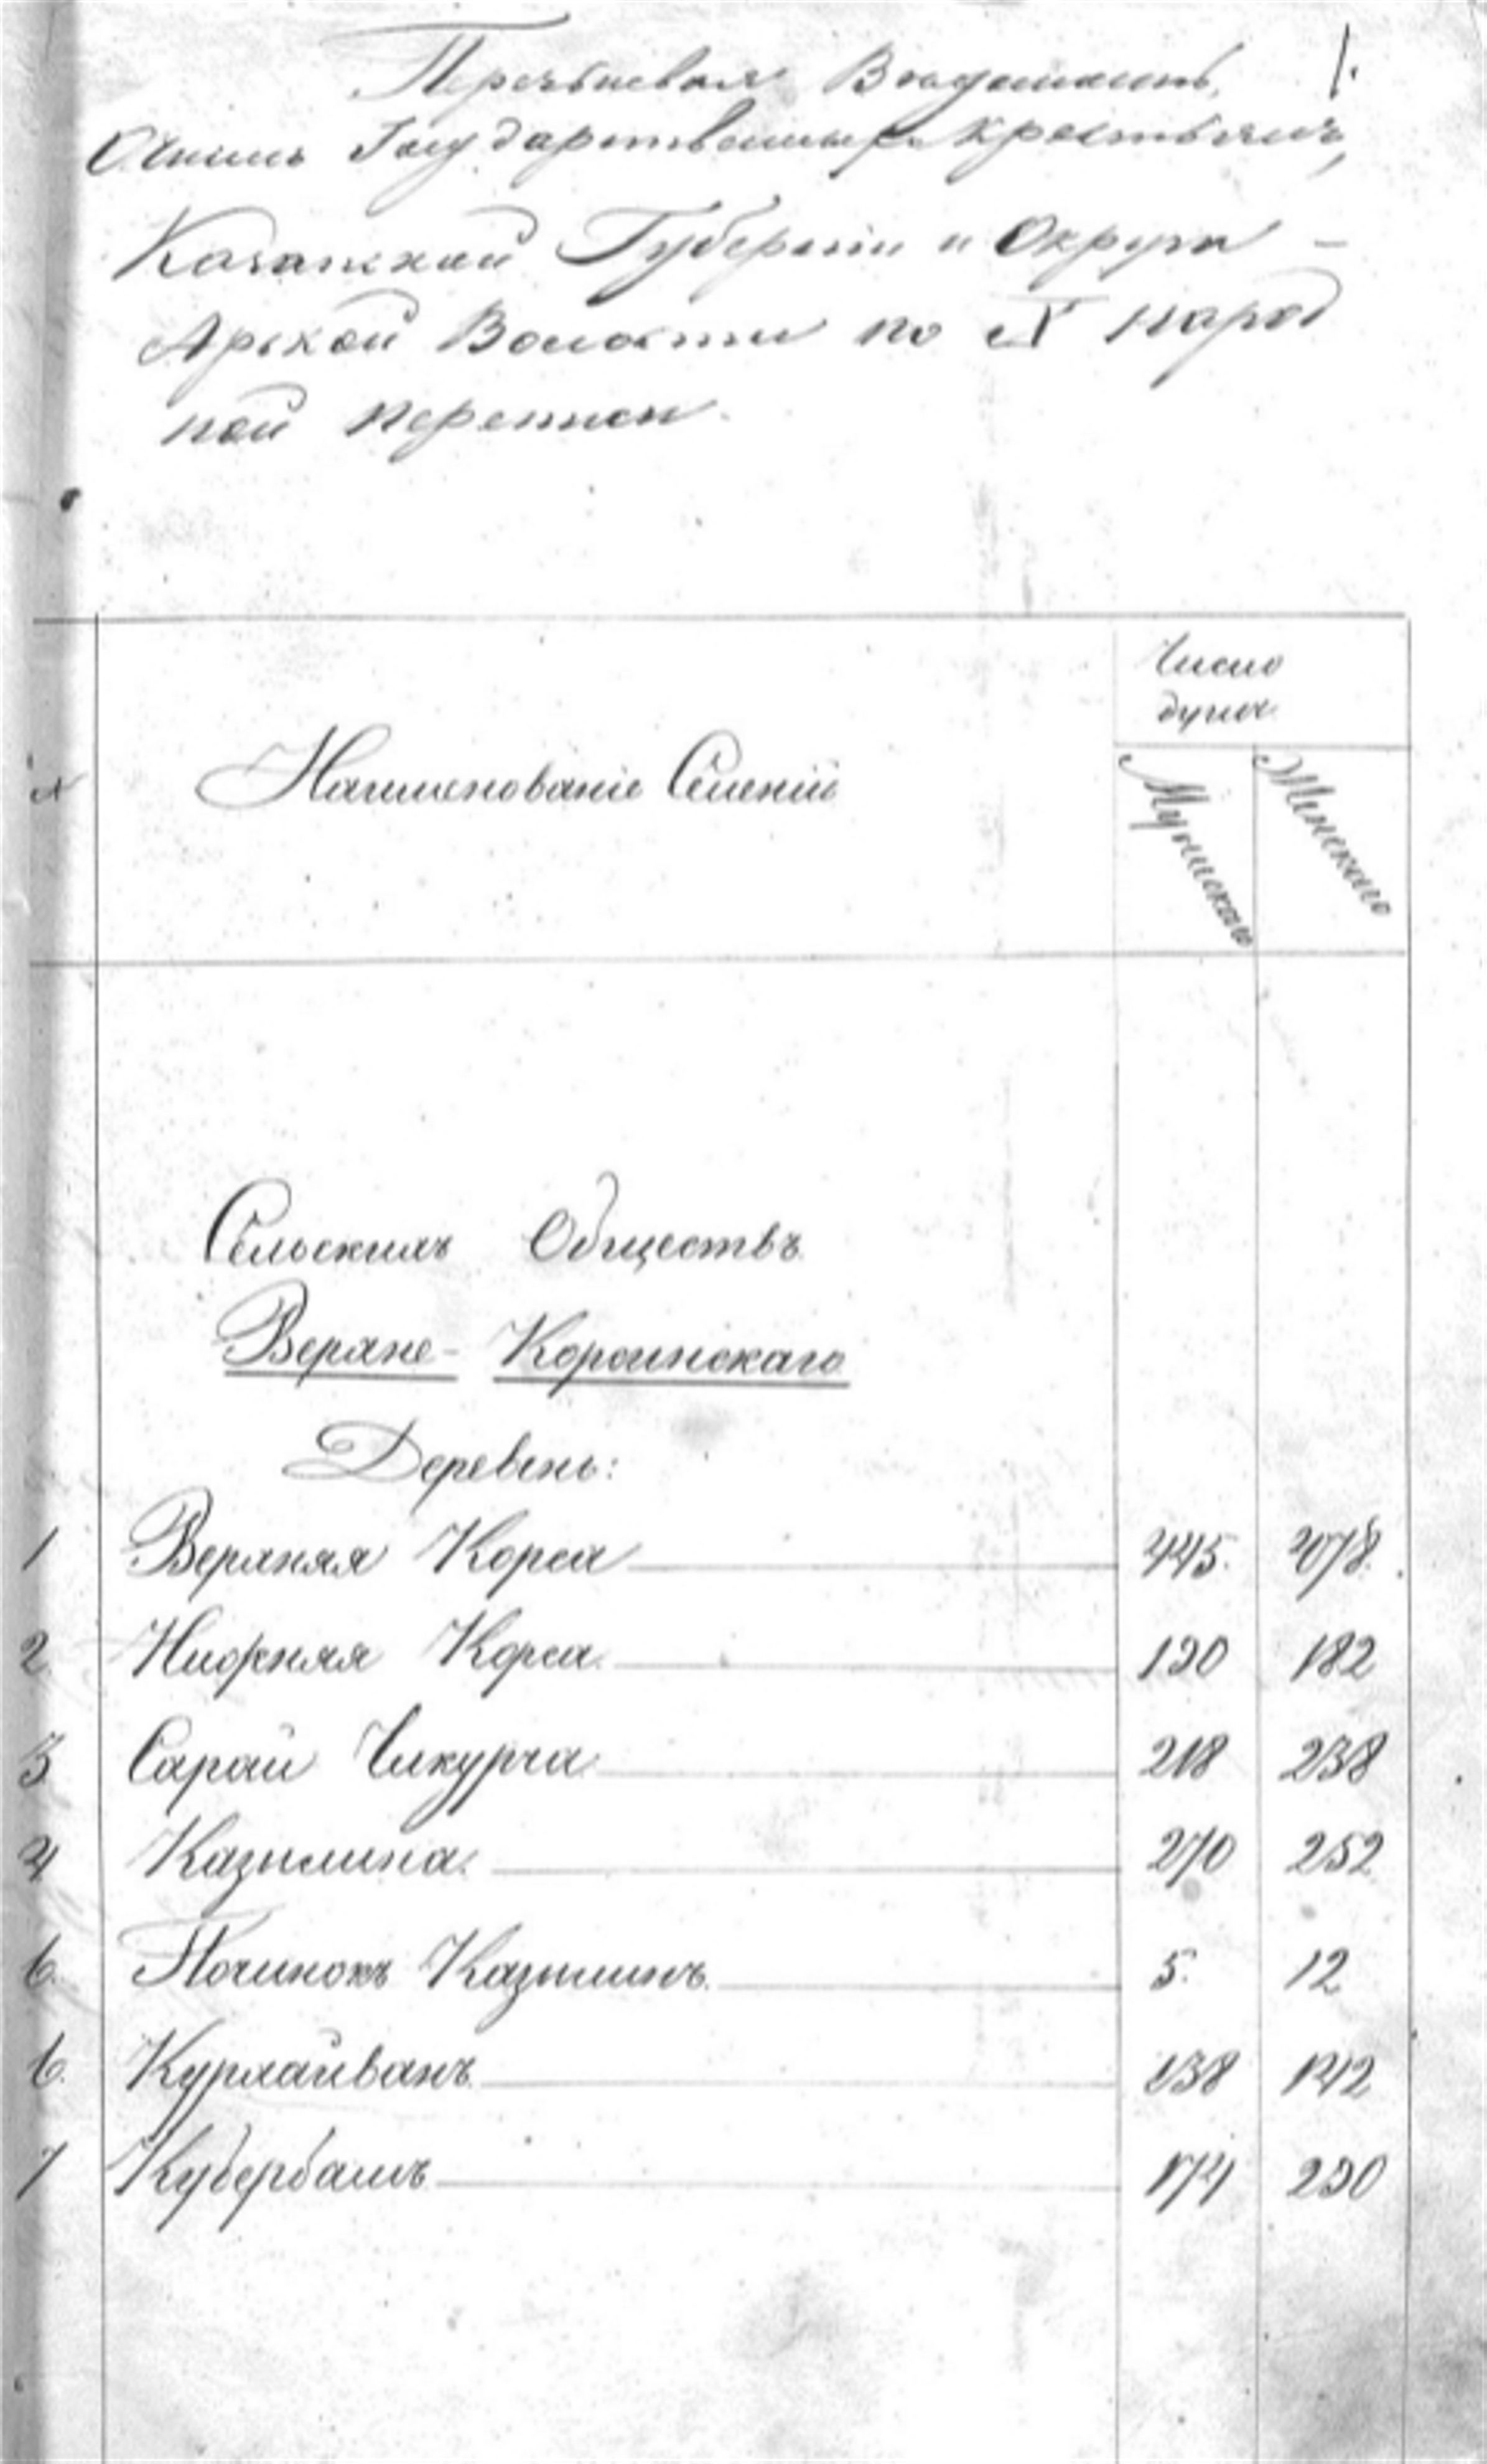 Перечневая Вѣдомость 1.
О числѣ Государственныхъ крестьянъ,
Казанской Губерніи и Округа –
Арской Волости по X народ
ной переписи.
Число
душъ
№ Наименованіе Селеній Мужскаго Женскаго
Сельскихъ Обществъ
Верхне-Корсинскаго
Деревень:
1 Верхняя Корса 445. 478.
2 Нижняя Корса 190 182
3 Сарай Чикурча 218 238
4 Казылина 270 252
6. Починокъ Казылинъ 5. 12
6. Курхайванъ 138 142
7 Кубербашъ 174 290